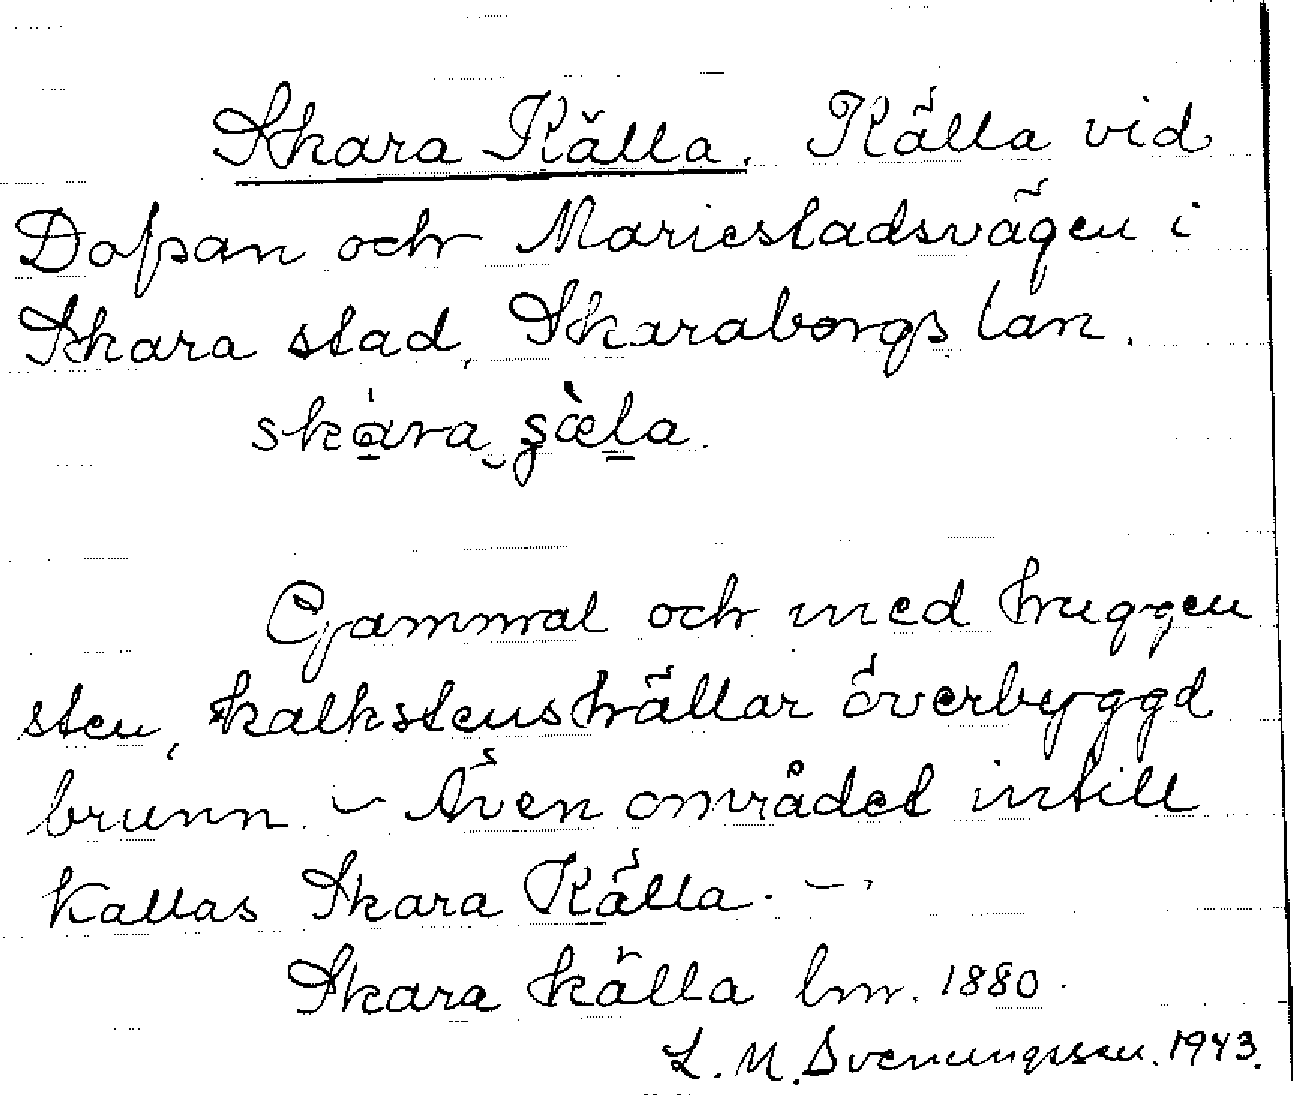 Skara Källa. Källa vid
Dofsan och Mariestadsvägen i
Skara stad, Skaraborgs län.
skára
Gammal och med huggen
sten, kalkstenshällar överbyggd
brunn. – Även området intill
kallas Skara Källa. –
Skara källa lm. 1880.
L. M. Svenungsson. 1943.